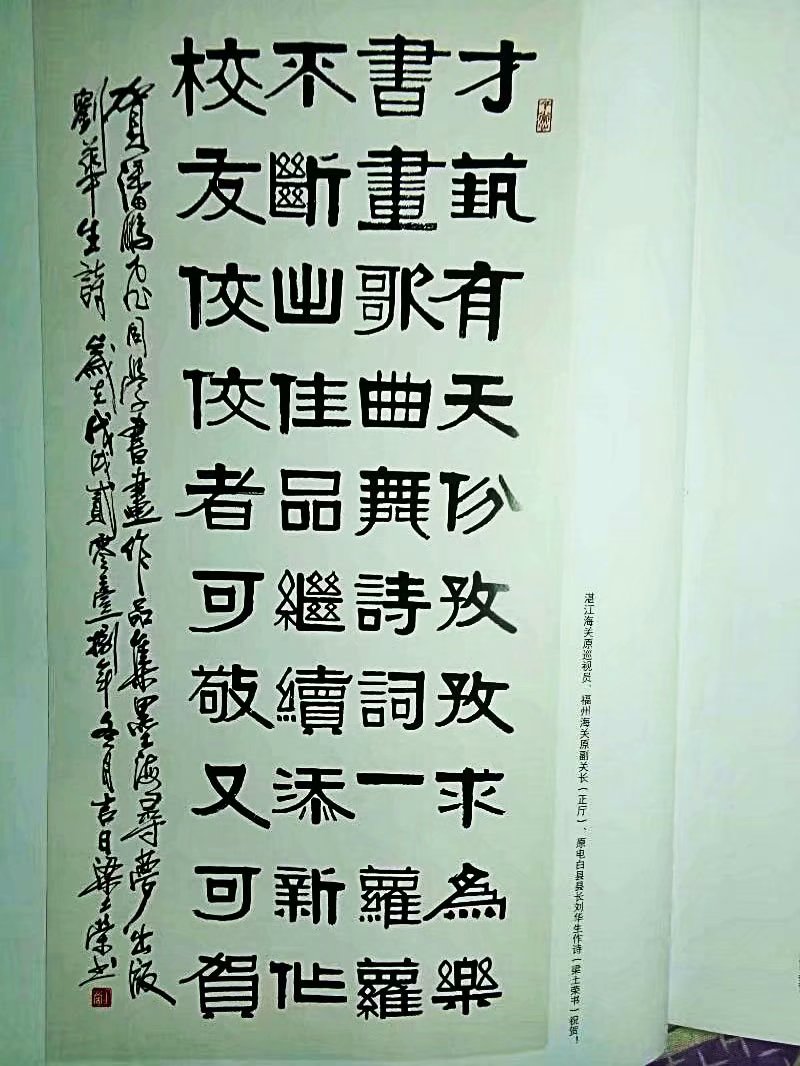 才蓺有天份孜孜求為樂
書畫歌曲舞詩詞一蘿蘿
不斷出佳品繼續添新作
校友佼佼者可敬又可賀
賀潘鵬同學書畫作品集墨海尋夢出版
劉華生詩 歲在戊戌貳零壹捌年冬月吉日梁士榮书
湛江海关原巡视员、福州海关原副关长（正厅）、原电白县县长刘华生作诗（梁士荣书）祝贺！